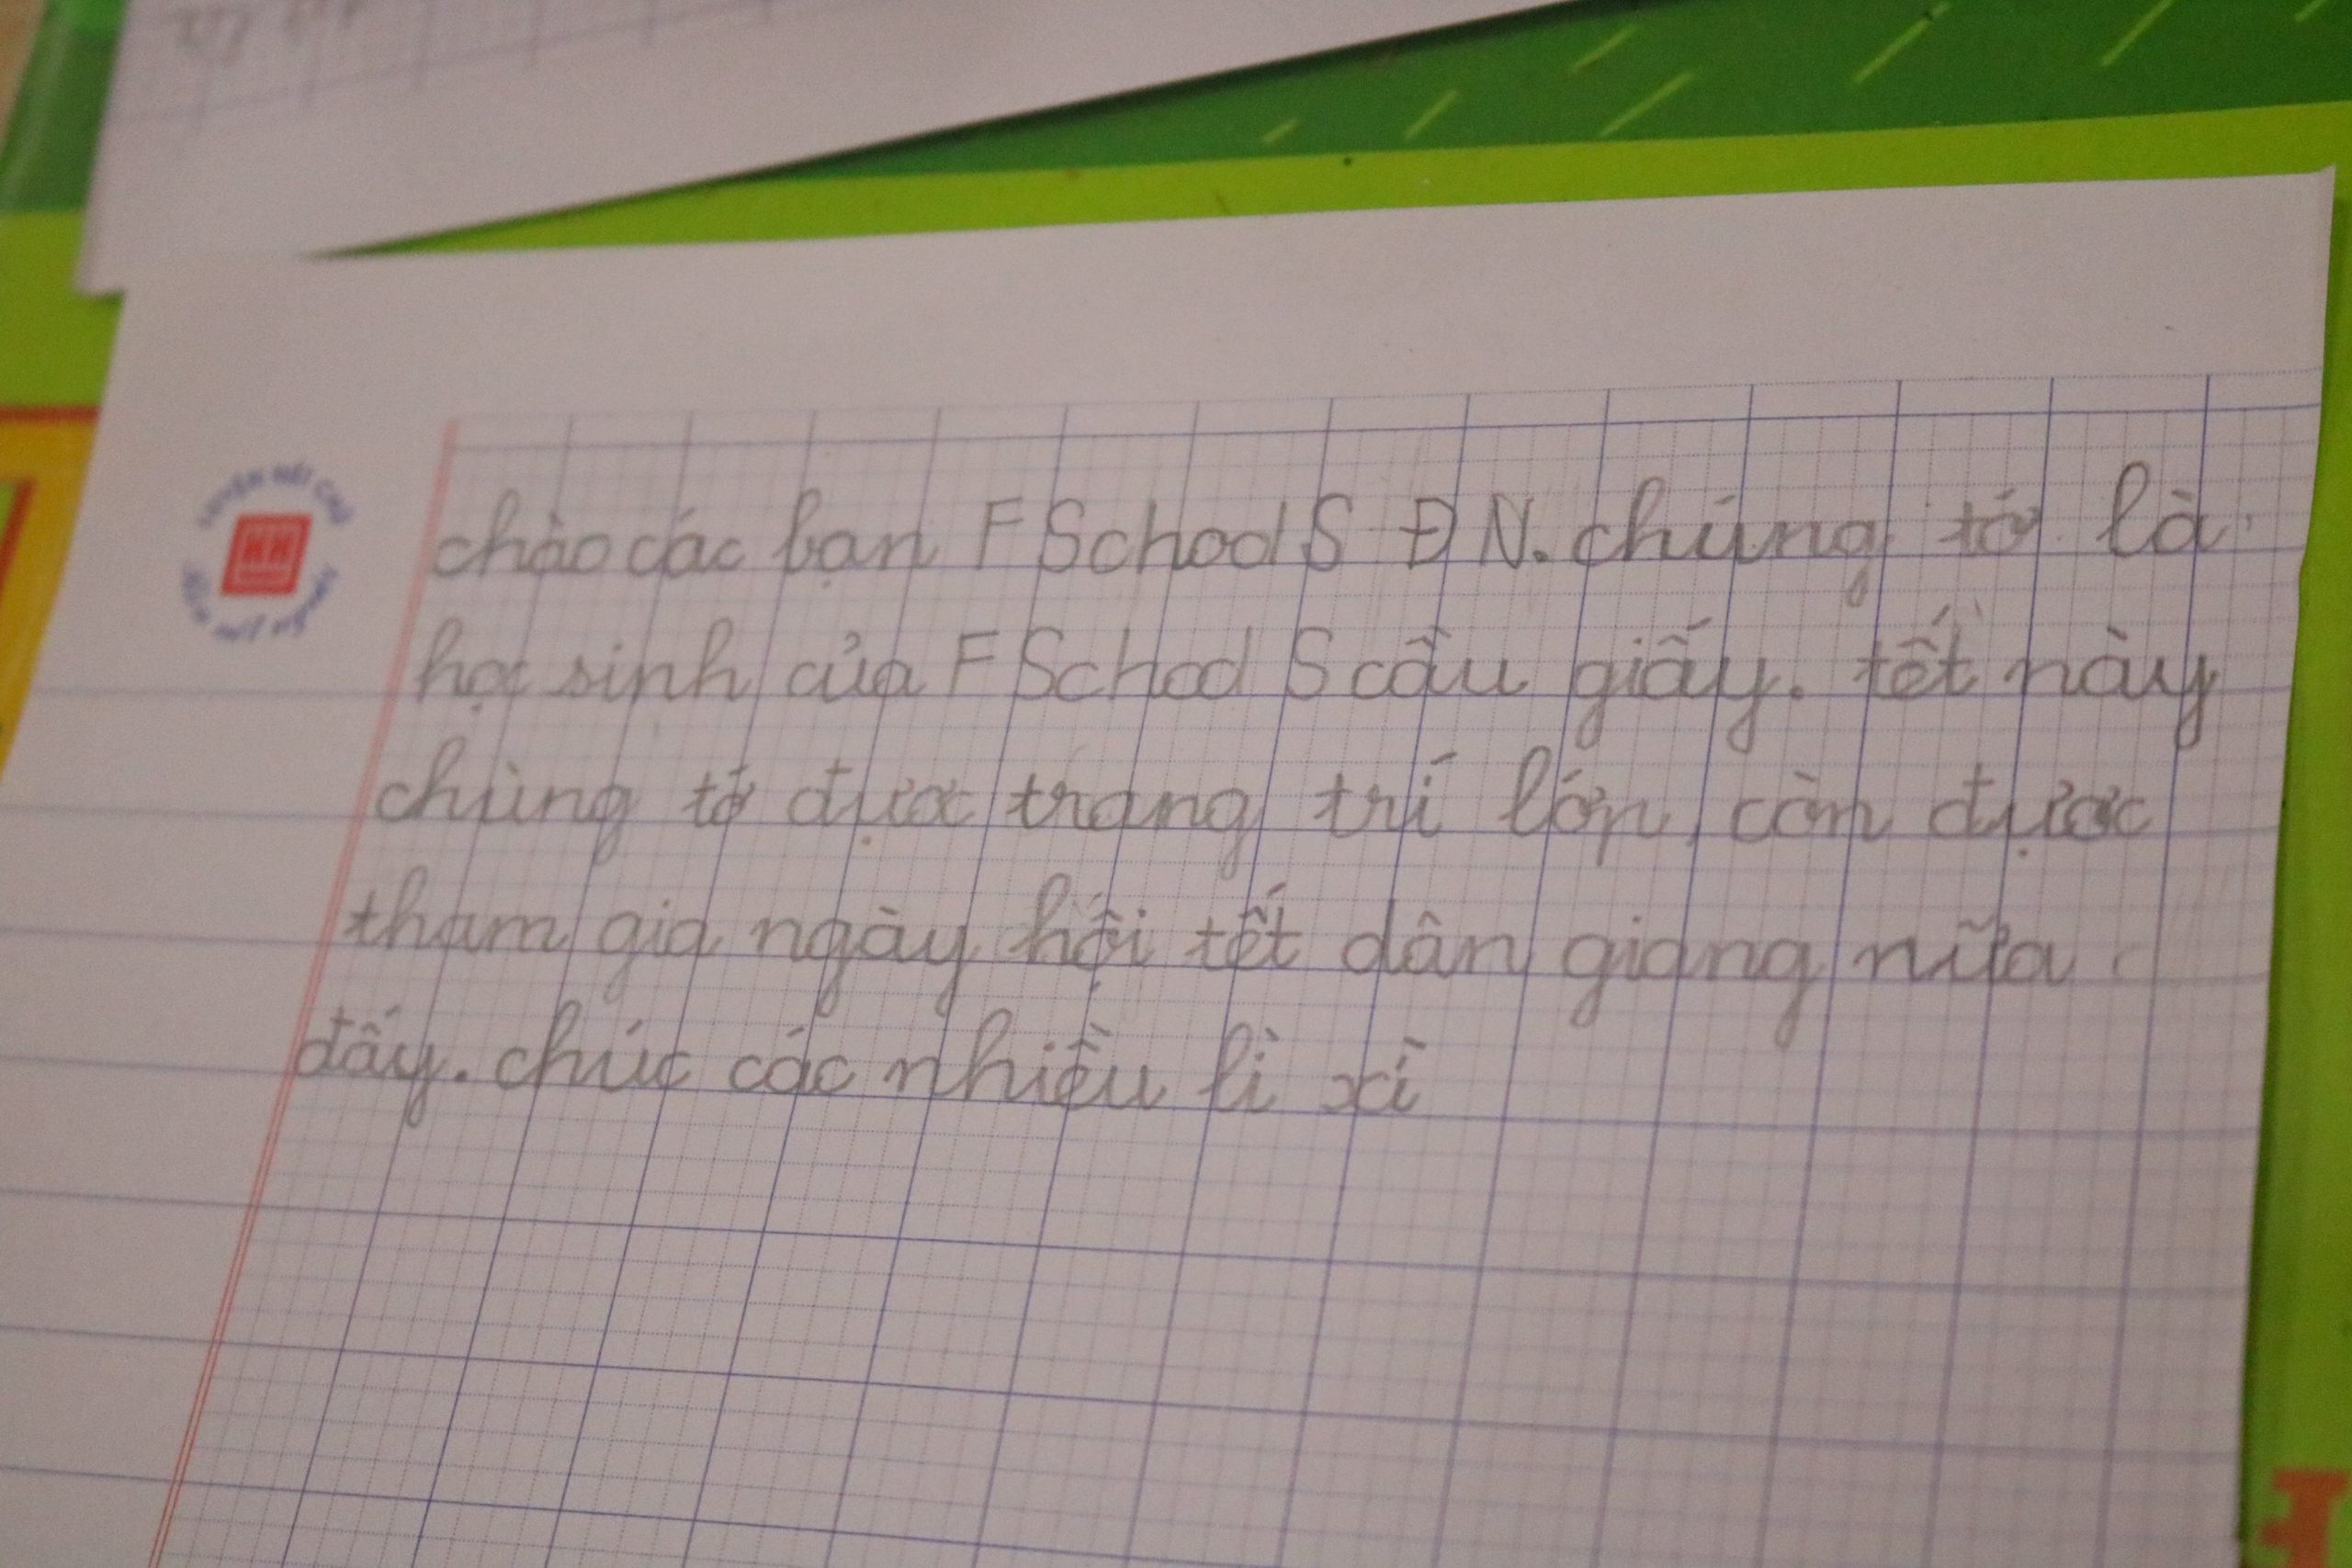 chào các bạn FSchoolS ĐN. chúng tớ là
học sinh của FSchool S cầu giấy. tết này
chúng tớ được trang trí lớp, còn được
tham gia ngày hội tết dân giang nữa
đấy. chúc các nhiều lì xì